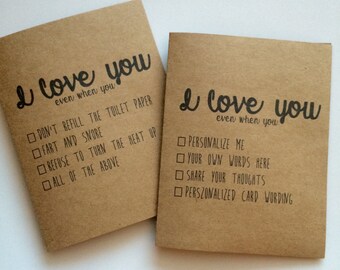 I love you
even when you
DON'T REFILL THE TOILET PAPER
FART AND SNORE
REFUSE TO TURN THE HEAT UP
ALL OF THE ABOVE
I love you
even when you
PERSONALIZE ME
YOUR OWN WORDS HERE
SHARE YOUR THOUGHTS
PERSZONALIZED CARD WORDING